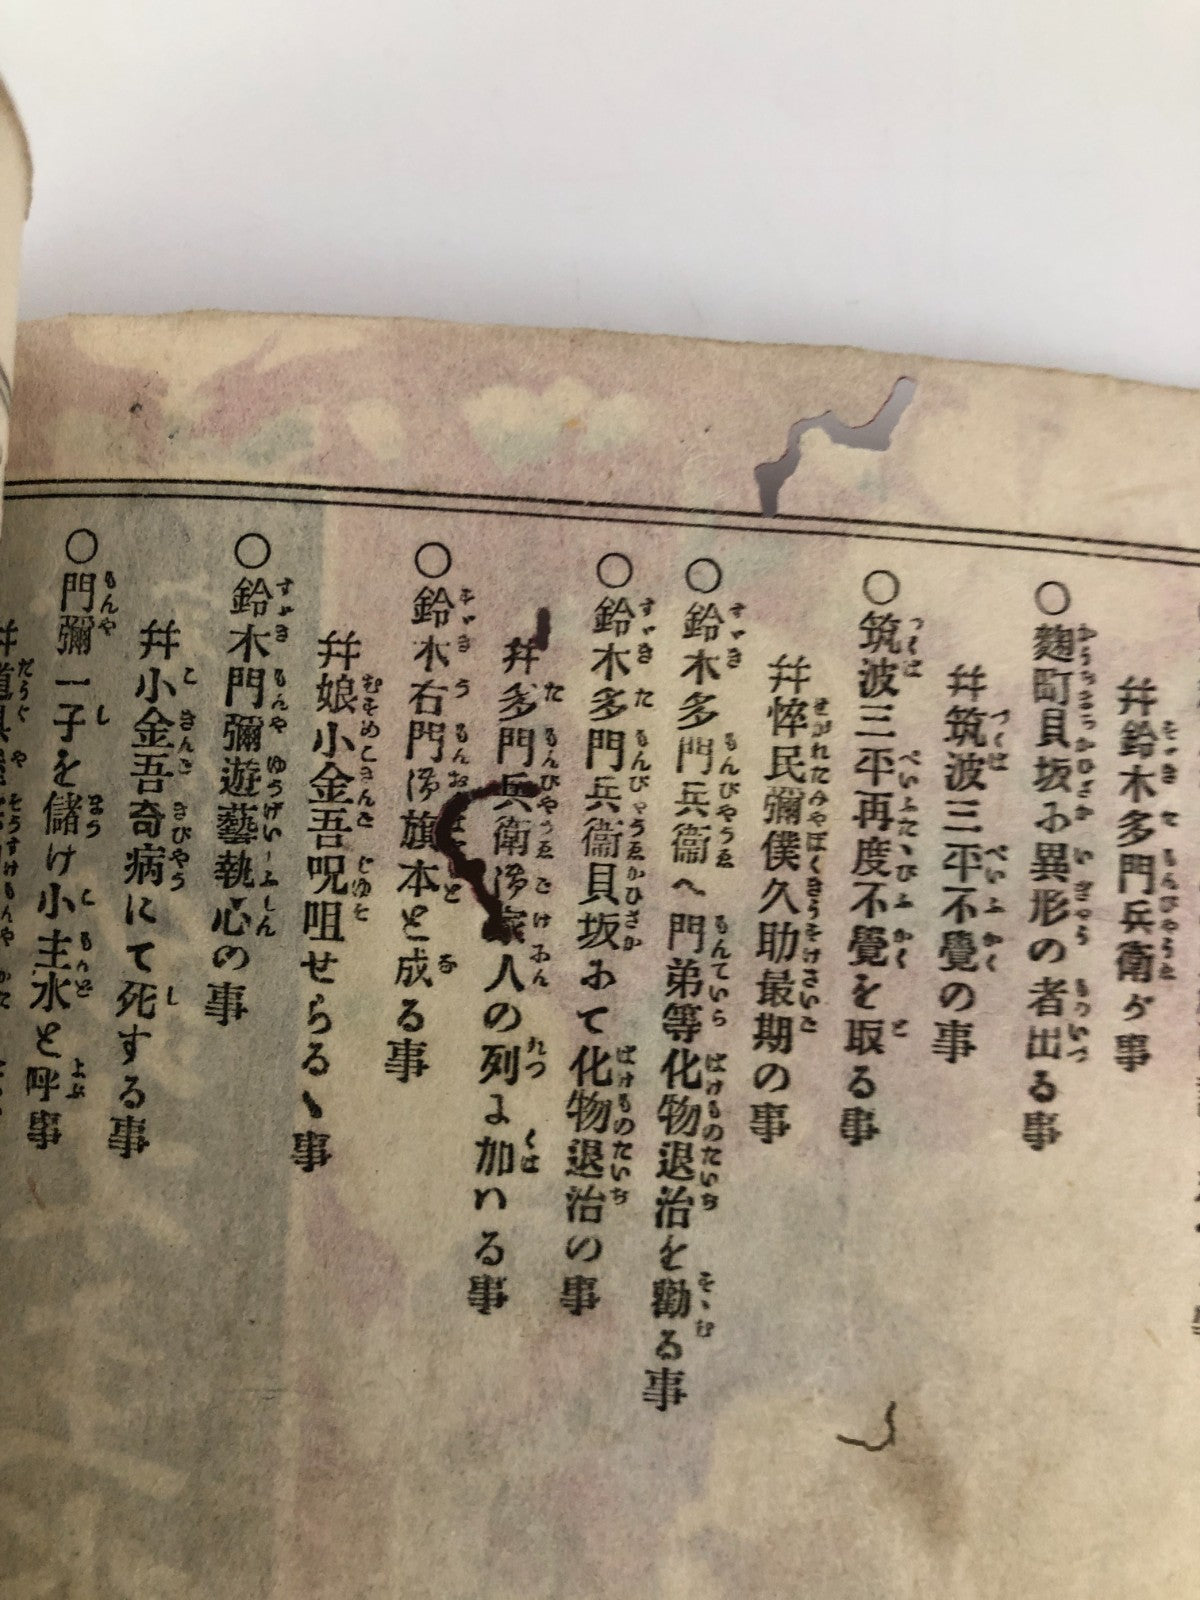 幷鈴木多門兵衛が事
○麴町貝坂お異形の者出る事
幷筑波三平不覺の事
○筑波三平再度不覺を取る事
幷悴民彌僕久助最期の事
○鈴木多門兵衞へ門弟等化物退治を勸る事
○鈴木多門兵衞貝坂おて化物退治の事
幷多門兵衛御家人の列よ加ハる事
○鈴木右門御旗本と成る事
幷娘小金吾呪咀せらるゝ事
○鈴木門彌遊藝執心の事
幷小金吾奇病にて死する事
○門彌一子を儲け小主水と呼事
幷道具